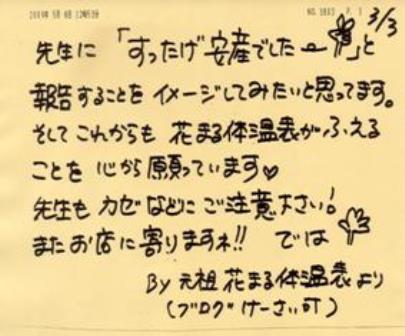 2009年 5月 8日 12時53分 NO.3803 P. 1
3/3
先生に「すったげ安産でしたー」と
報告することを イメージしてみたいと思ってます。
そして これからも 花まる体温表が ふえる
ことを 心から願っています♡
先生も カゼなどに ご注意下さい!
またお店に寄りますネ!! では
By 元祖 花まる体温表 より
(ブログけーさい可)